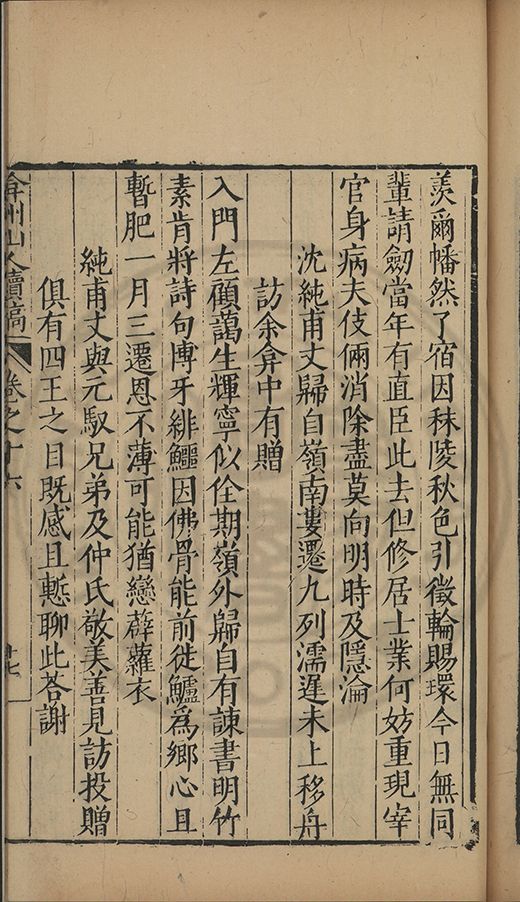 羨爾幡然了宿因秣陵秋色引徵輪賜環今日無同
輩請劒當年有直臣此去但修居士業何妨重現宰
官身病夫伎倆消除盡莫向明時及隱淪
沈純甫丈歸自嶺南婁遷九列濡遲未上移舟
訪余弇中有贈
入門左顧藹生輝寧似佺期嶺外歸自有諫書明竹
素肯將詩句博牙緋鱷因佛骨能前徙鱸爲鄉心且
暫肥一月三遷恩不薄可能猶戀薜蘿衣
純甫丈與元馭兄弟及仲氏敬美善見訪投贈
俱有四王之目既感且慙聊此答謝
弇州山人續稿
卷之十六
十七